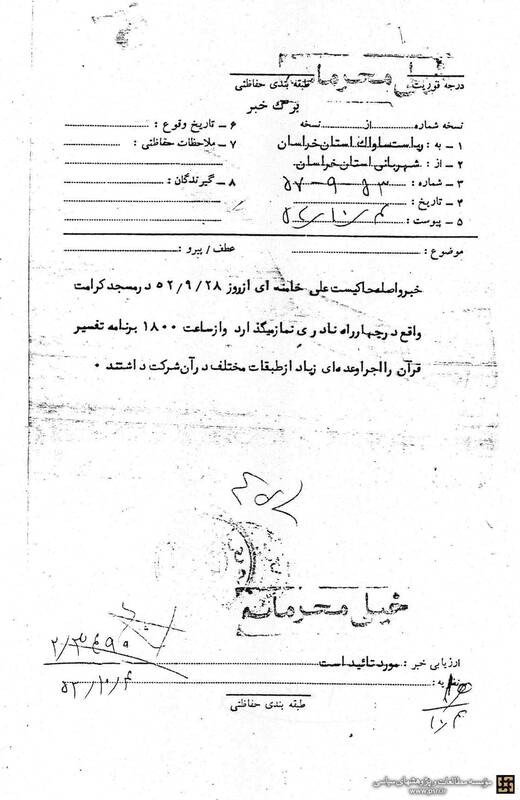 خیلی محرمانه
درجه فوریت
طبقه بندی حفاظتی
برگ خبر
نسخه شماره از نسخه
۱ - به : ریاست ساواك استان خراسان
۲ - از : شهربانی استان خراسان
۳ - شماره :
۴ - تاریخ :
۵ - پیوست :
۶ - تاریخ وقوع :
۷ - ملاحظات حفاظتی :
۸ - گیرندگان :
موضوع :
عطف / پیرو :
خبرواصله حاکیست علی خامنه ای ازروز ۵۲/۹/۲۸ درمسجد کرامت
واقع درچهارراه نادری نمازمیگذارد وازساعت ۱۸۰۰ برنامه تفسیر
قرآن را اجرا وعده‌ای زیاد ازطبقات مختلف درآن شرکت داشتند ۰
خیلی محرمانه
ارزیابی خبر : مورد تائید است
۵۲/۱۰/۴
طبقه بندی حفاظتی
مؤسسه مطالعات و پژوهشهای سیاسی
www.psri.ir